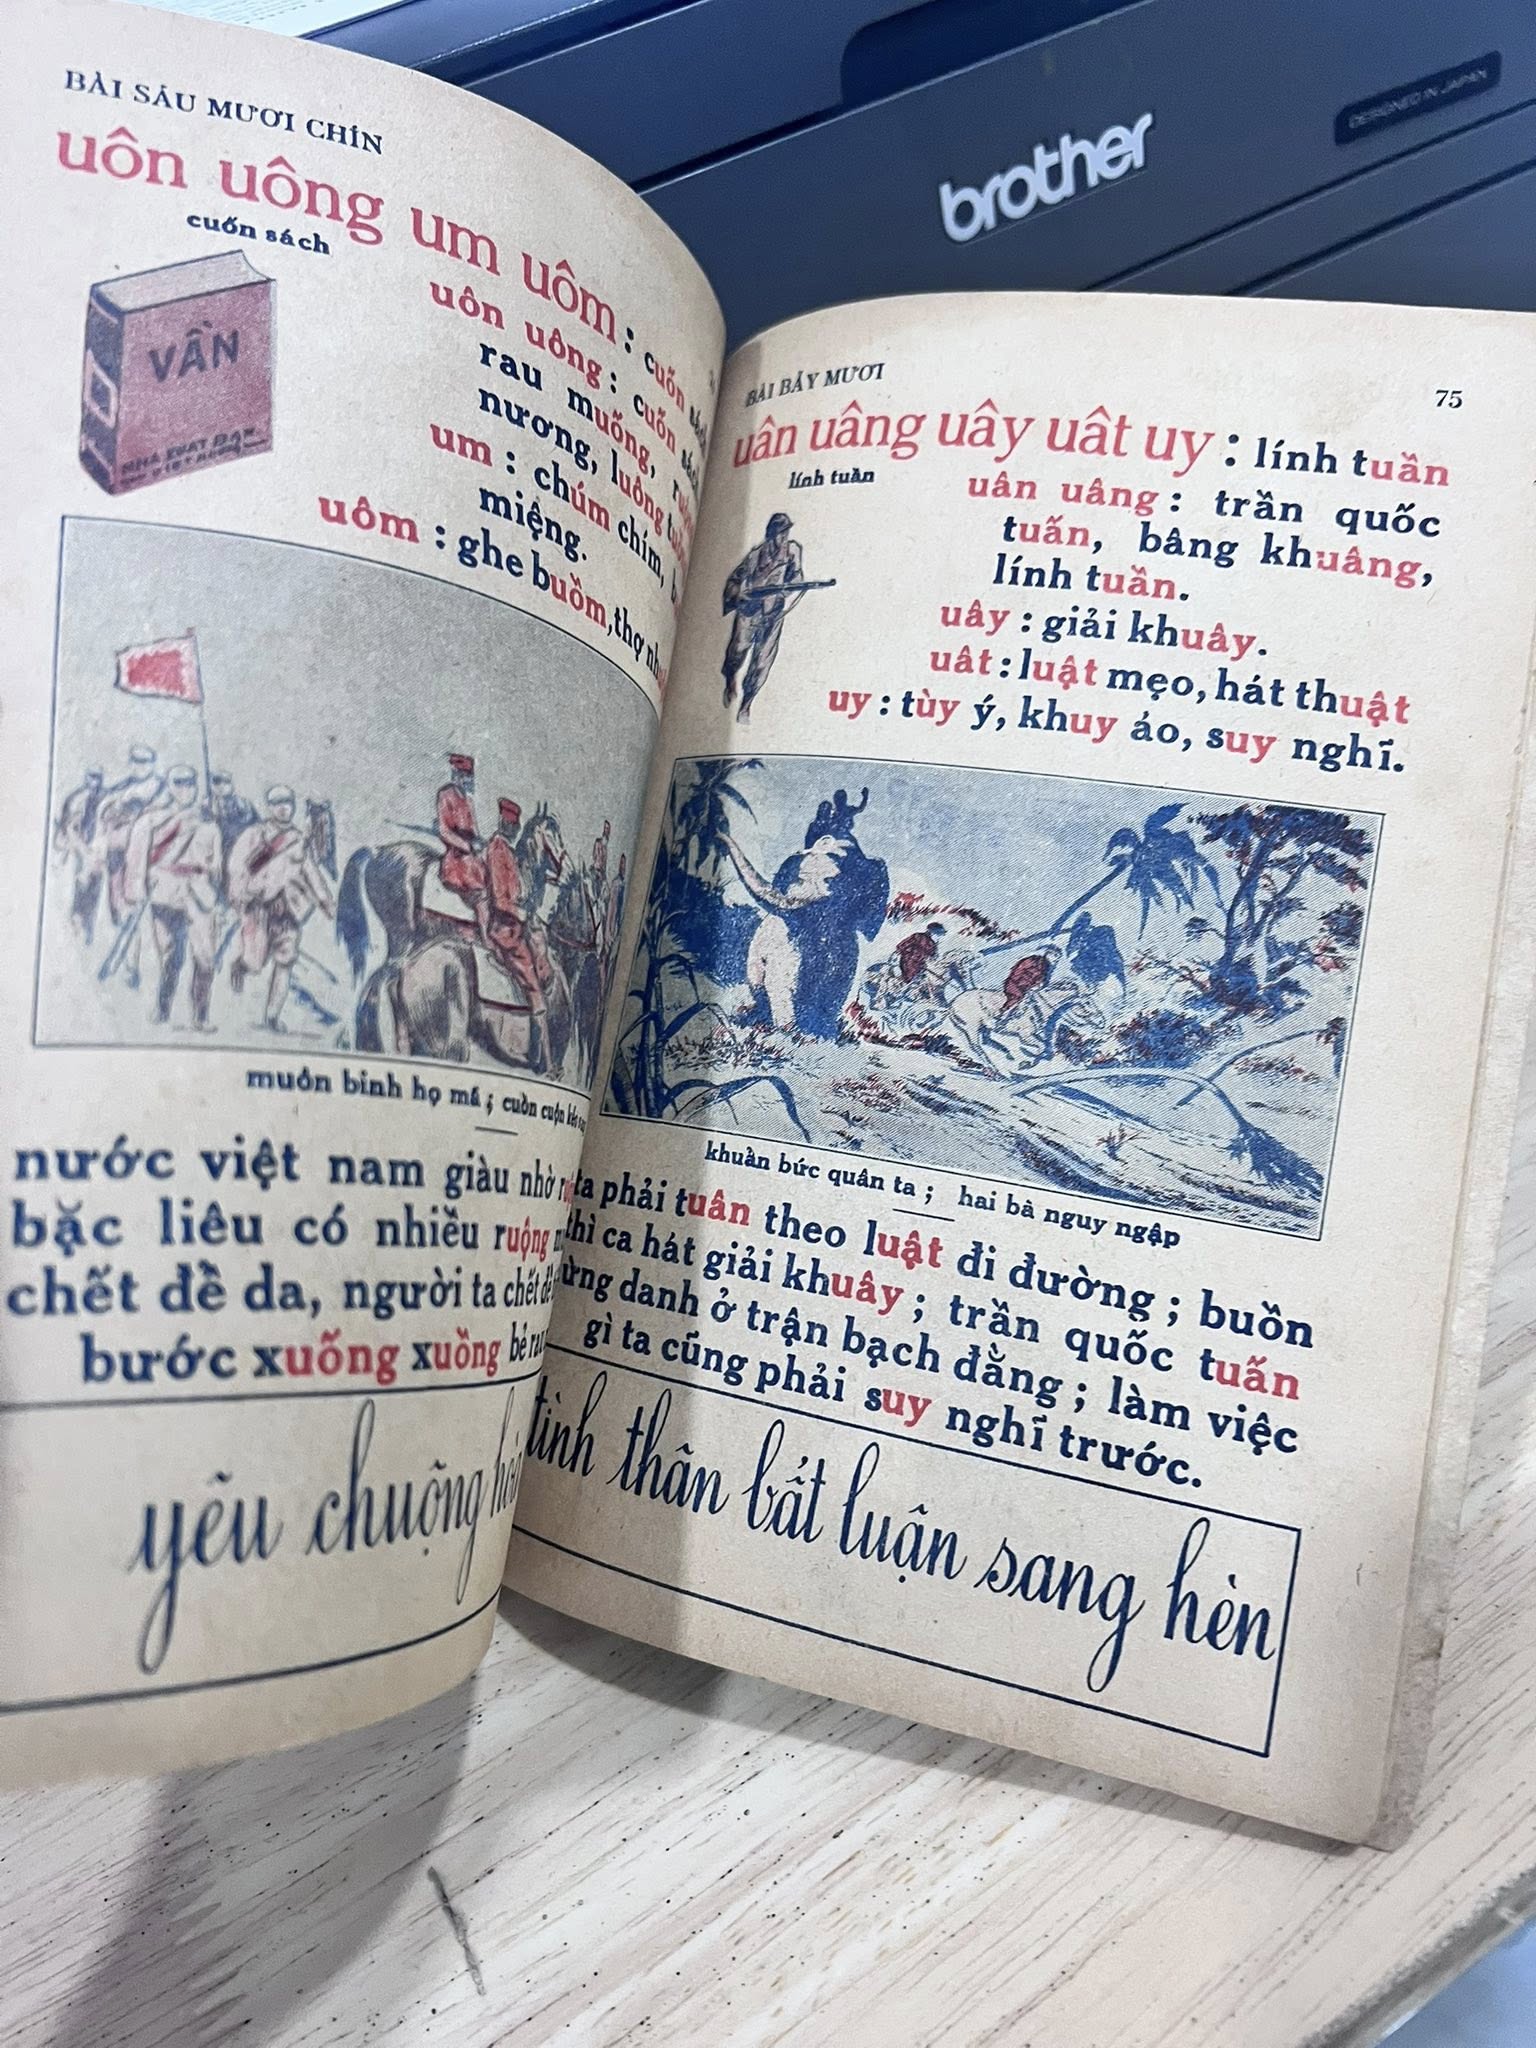 BÀI SÁU MƯƠI CHÍN
uôn uông um uôm : cuốn sách
cuốn sách
VẦN
NHÀ XUẤT BẢN
uôn uông : cuốn sách
rau muống,
nương, luống
um : chúm chím,
miệng.
uôm : ghe buồm, thợ
muôn binh họ mã ; cuồn cuộn kéo
nước việt nam giàu nhờ
bặc liêu có nhiều ruộng
chết để da, người ta chết để
bước xuống xuồng bẻ rau
yêu chuộng
BÀI BẢY MƯƠI
75
uân uâng uây uât uy : lính tuần
lính tuần
uân uâng : trần quốc
tuấn, bâng khuâng,
lính tuần.
uây : giải khuây.
uât : luật mẹo, hát thuật
uy : tùy ý, khuy áo, suy nghĩ.
khuân bức quân ta ; hai bà nguy ngập
ta phải tuân theo luật đi đường ; buồn
thì ca hát giải khuây ; trần quốc tuấn
ừng danh ở trận bạch đằng ; làm việc
gì ta cũng phải suy nghĩ trước.
tình thân bất luận sang hèn
brother
DESIGNED IN JAPAN